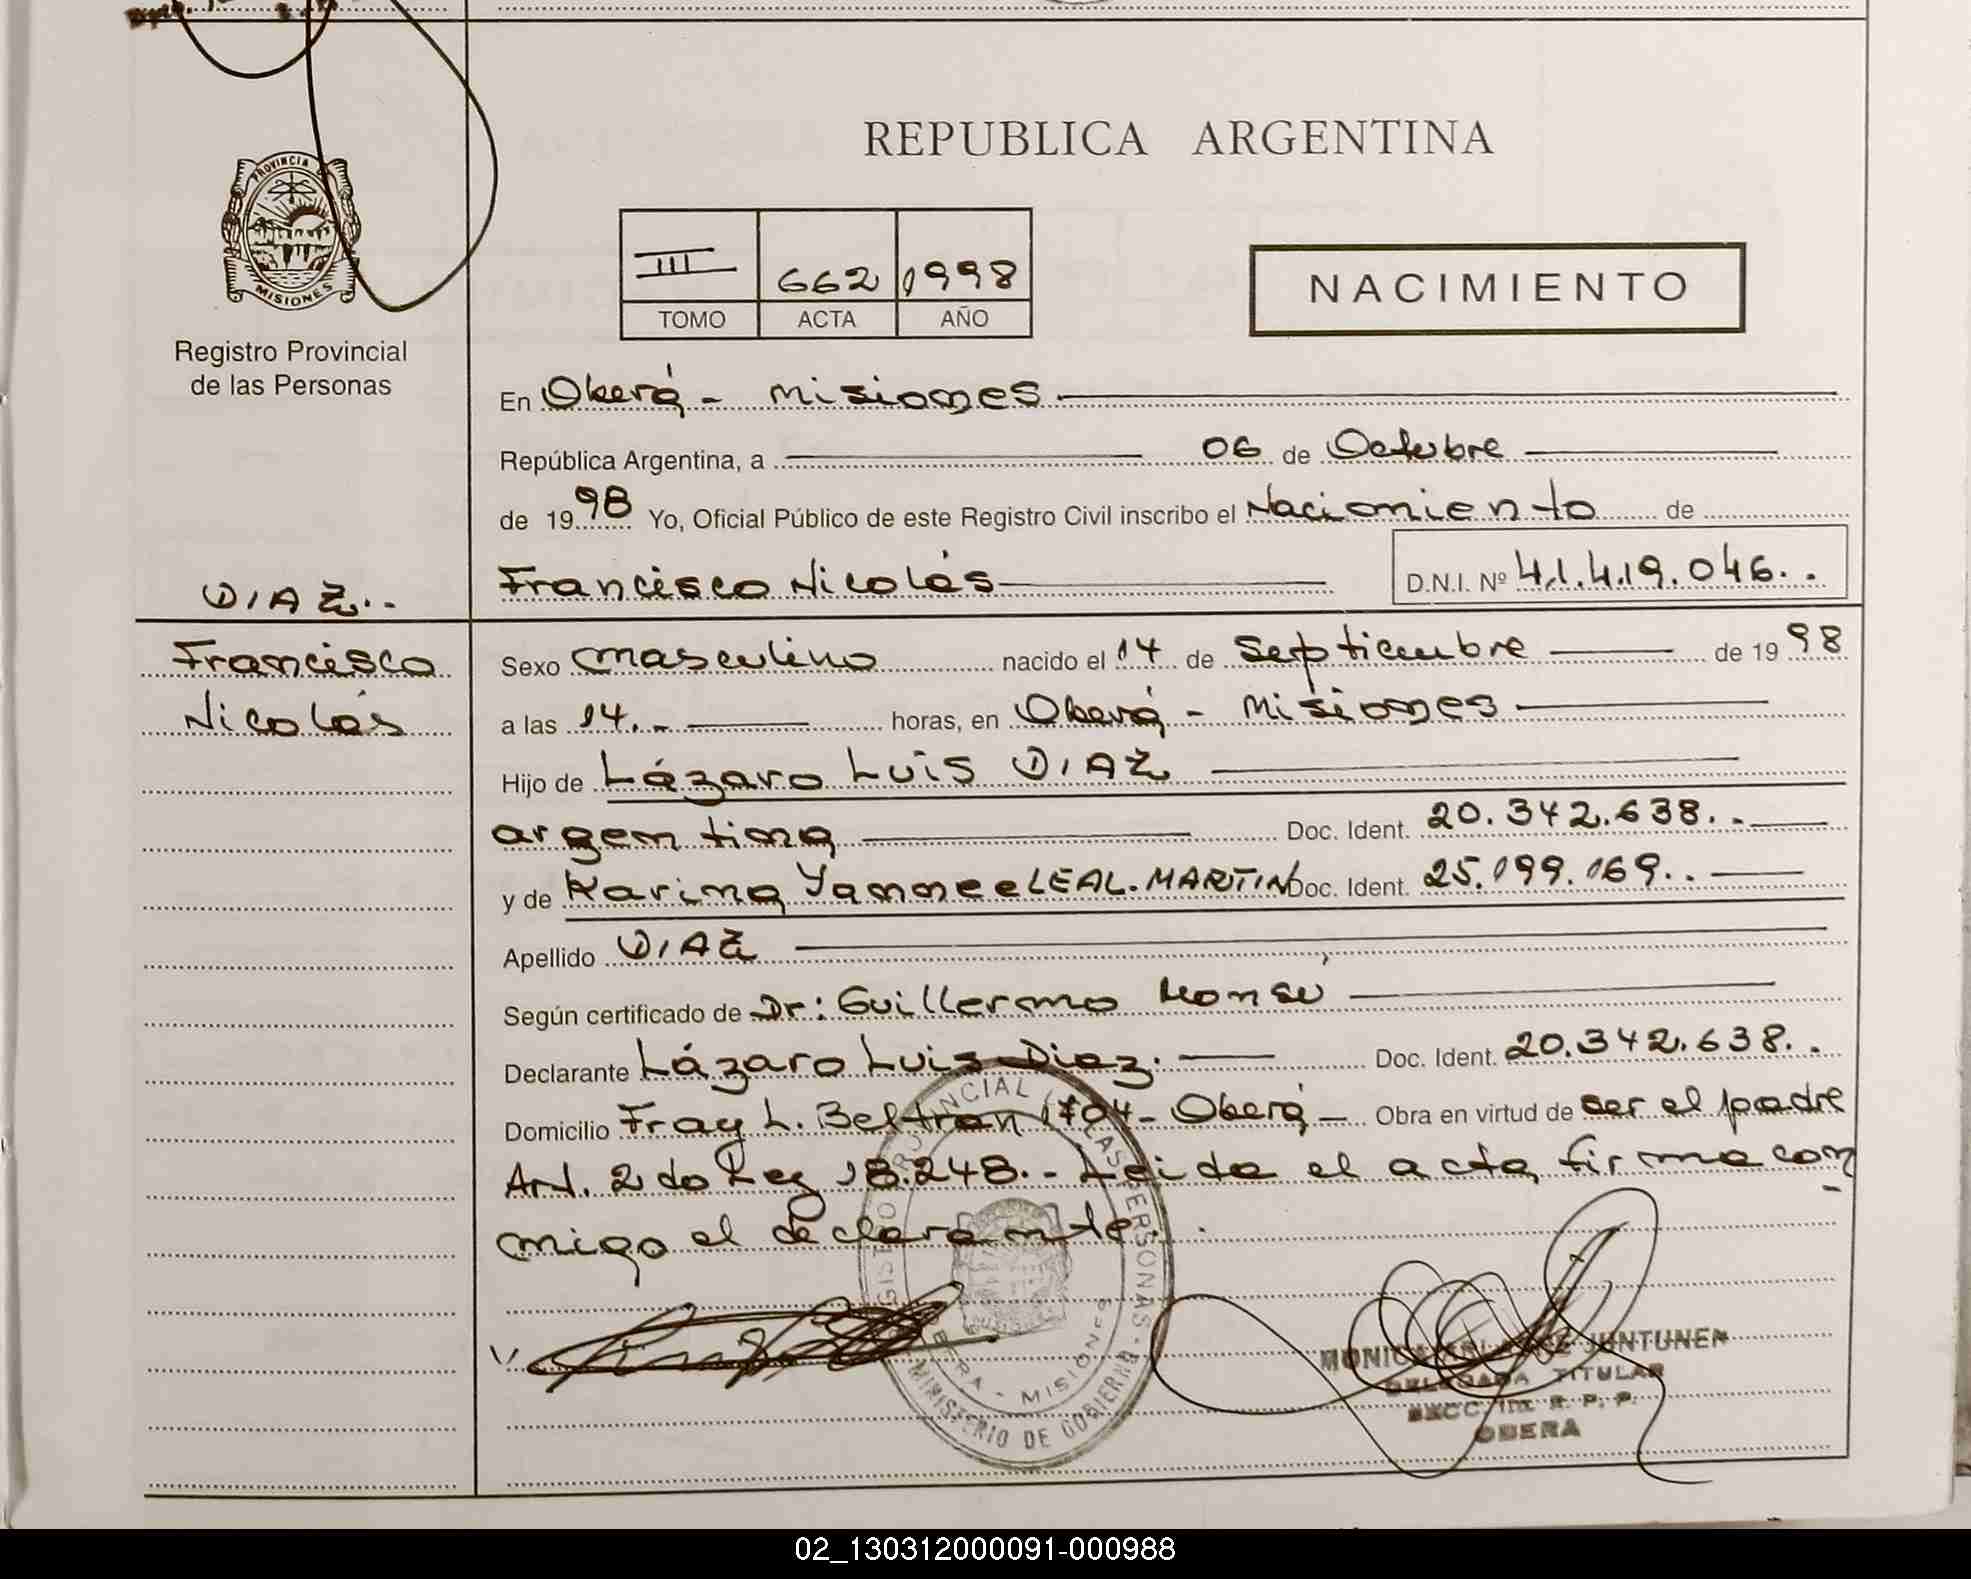 REPUBLICA ARGENTINA
PROVINCIA
MISIONES
Registro Provincial
de las Personas
III 662 1998
TOMO ACTA AÑO
NACIMIENTO
En Oberá - Misiones
República Argentina, a 06 de Octubre
de 1998 Yo, Oficial Público de este Registro Civil inscribo el Nacimiento de
Francisco Nicolás D.N.I. Nº 41.419.046..
DIAZ..
Francisco
Nicolás
Sexo masculino nacido el 14 de Septiembre de 1998
a las 14.- horas, en Oberá - Misiones
Hijo de Lázaro Luis DIAZ
argentina Doc. Ident. 20.342.638..
y de Karina Yannee LEAL.MARTIN Doc. Ident. 25.199.169..
Apellido DIAZ
Según certificado de Dr: Guillermo
Declarante Lázaro Luis Diaz. Doc. Ident. 20.342.638..
Domicilio Fray L. Beltran 1704- Oberá - Obra en virtud de ser el padre
Art. 2do Ley 18.248.- Leida el acta firma con
migo el declarante.
MINISTERIO DE GOBIERNO
MISIONES
JUNTUNEN
DELEGADA TITULAR
SECC. R. P. P.
OBERA
02_130312000091-000988